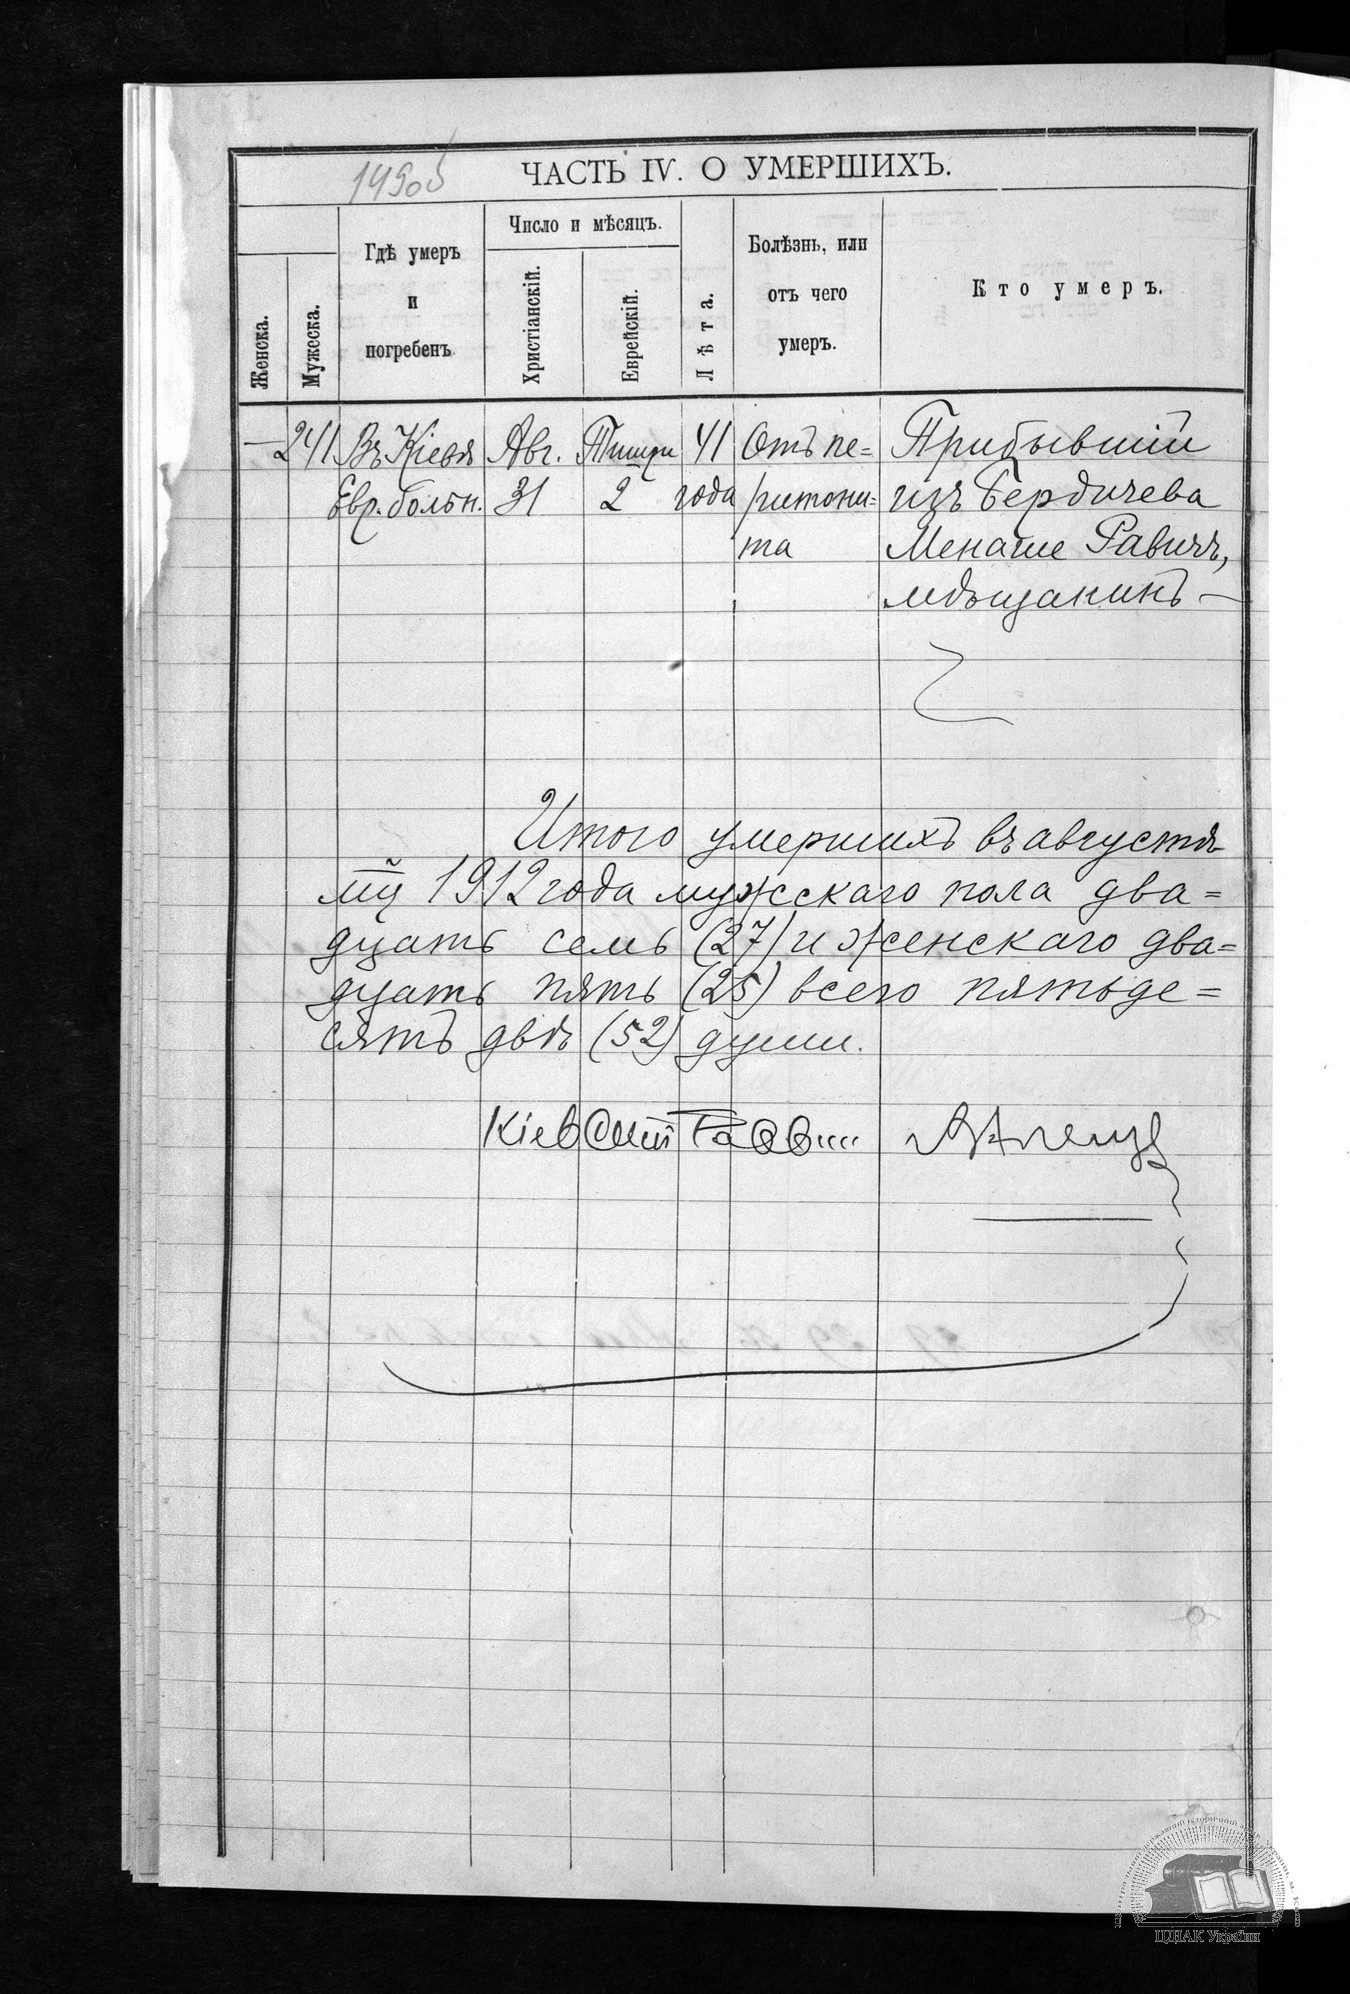 149об
ЧАСТЬ IV. О УМЕРШИХЪ.
Женска.
Мужеска.
Гдѣ умеръ
и
погребенъ
Число и мѣсяцъ.
Христіанскій.
Еврейскій.
Лѣта.
Болѣзнь, или
отъ чего
умеръ.
Кто умеръ.
— 241 Въ Кіевѣ Авг. Тишри 41 Отъ пе= Прибывшій
Евр. больн. 31 2 года ритони= изъ Бердичева
та Менаше Равичъ,
мѣщанинъ —
Итого умершихъ въ августѣ
мцѣ 1912 года мужскаго пола два=
дцать семь (27) и женскаго два=
дцать пять (25) всего пятьде=
сятъ двѣ (52) души.
Кіевскій
ЦДІАК України